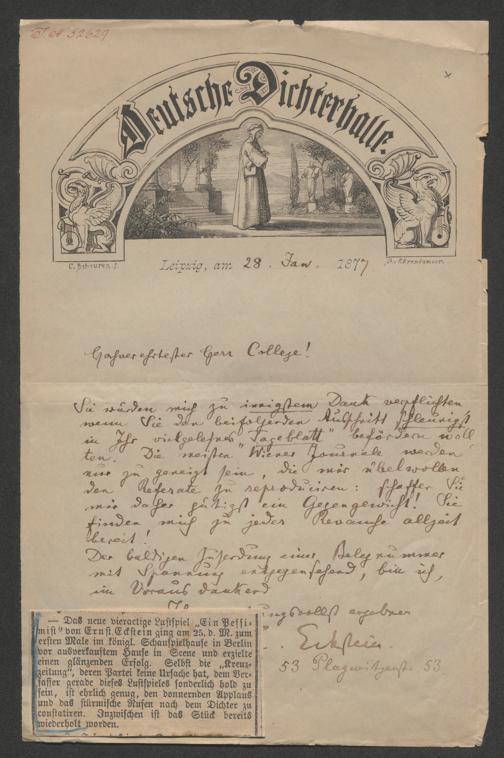 Deutsche Dichterhalle.
Leipzig, am 28. Jan. 1877
Hochverehrtester Herr College!
Sie würden mich zu innigstem Dank verpflichten
wenn Sie den beifolgenden Ausschnitt schleunigst
in Ihr vielgelesnes "Tageblatt" befördern woll
ten. Die meisten Wiener Journale werden
nur zu geneigt sein, die mir übelwollen
den Referate zu reproduciren: schaffen Sie
mir daher gütigst ein Gegengewicht! Sie
finden mich zu jeder Revanche allzeit
bereit!
Der baldigen Zusendung einer Belegnummer
mit Spannung entgegensehend, bin ich,
im Voraus dankend
ergebner
Eckstein.
53 Plagwitzerst. 53
— Das neue vieractige Lustspiel „Ein Pessi-
mist" von Ernst Eckstein ging am 25. d. M. zum
ersten Male im königl. Schauspielhause in Berlin
vor ausverkauftem Hause in Scene und erzielte
einen glänzenden Erfolg. Selbst die „Kreuz-
zeitung", deren Partei keine Ursache hat, dem Ver-
fasser gerade dieses Lustspieles sonderlich hold zu
sein, ist ehrlich genug, den donnernden Applaus
und das stürmische Rufen nach dem Dichter zu
constatiren. Inzwischen ist das Stück bereits
wiederholt worden.